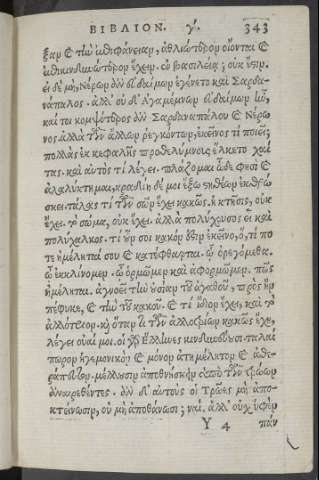 ΒΙΒΛΙΟΝ. γ΄. 343
ξαν καὶ τὴν ἐπιφάνειαν, ἀθλιώτερον οἴονται καὶ
ἐπικινδυνώτερον ἔχειν. ἐν βασιλείᾳ; οὐκ ἔστιν.
εἰ δὲ μὴ, Νέρων ἂν εὐδαίμων ἐγένετο καὶ Σαρδα-
νάπαλος. ἀλλ' οὐδ' Ἀγαμέμνων εὐδαίμων ἦν,
καί τοι κομψότερος ὢν Σαρδαναπάλου καὶ Νέρω
νος ἀλλὰ τῶν ἄλλων ῥεγκόντων, ἐκεῖνος τί ποιεῖ;
πολλὰς ἐκ κεφαλῆς προθελύμνοις ἕλκετο χαί
τας. καὶ αὐτὸς τί λέγει; πλάζομαι ὧδε φησὶ καὶ
ἀλαλύκτημαι, κραδίη δέ μοι ἔξω στηθέων ἐκθρώ
σκει. τάλας τί τῶν σῶν ἔχει κακῶς. ἡ κτῆσις, οὐκ
ἔχει. τὸ σῶμα, οὐκ ἔχει. ἀλλὰ πολύχρυσος εἶ καὶ
πολύχαλκος. τί οὖν σοι κακόν ἐστιν ἐκεῖνο, ὅ, τί πο
τε ἠμέληταί σου καὶ κατέφθαρται. ᾧ ὀρεγόμεθα.
ᾧ ἐκκλίνομεν. ᾧ ὁρμῶμεν καὶ ἀφορμῶμεν. πῶς
ἠμέληται. ἀγνοεῖ τὴν οὐσίαν τοῦ ἀγαθοῦ, πρὸς ἣν
πέφυκε, καὶ τὴν τοῦ κακοῦ. καὶ τί ἴδιον ἔχει, καὶ τί
ἀλλότριον. καὶ ὅταν τι τῶν ἀλλοτρίων κακῶς ἔχῃ,
λέγει οὐαί μοι. οἱ γὰρ Ἕλληνες κινδυνεύουσι. ταλαί
πωρον ἡγεμονικὸν καὶ μόνον ἀτημέλητον καὶ ἀθε-
ράπευτον. μέλλουσιν ἀποθνήσκειν ὑπὸ τῶν τρώων
ἀναιρεθέντες. ἂν δ' αὐτοὺς οἱ Τρῶες μὴ ἀπο-
κτείνωσιν, οὐ μὴ ἀποθάνωσι; ναί. ἀλλ' οὐχ ὑφ' ἓν
Y 4 πάν